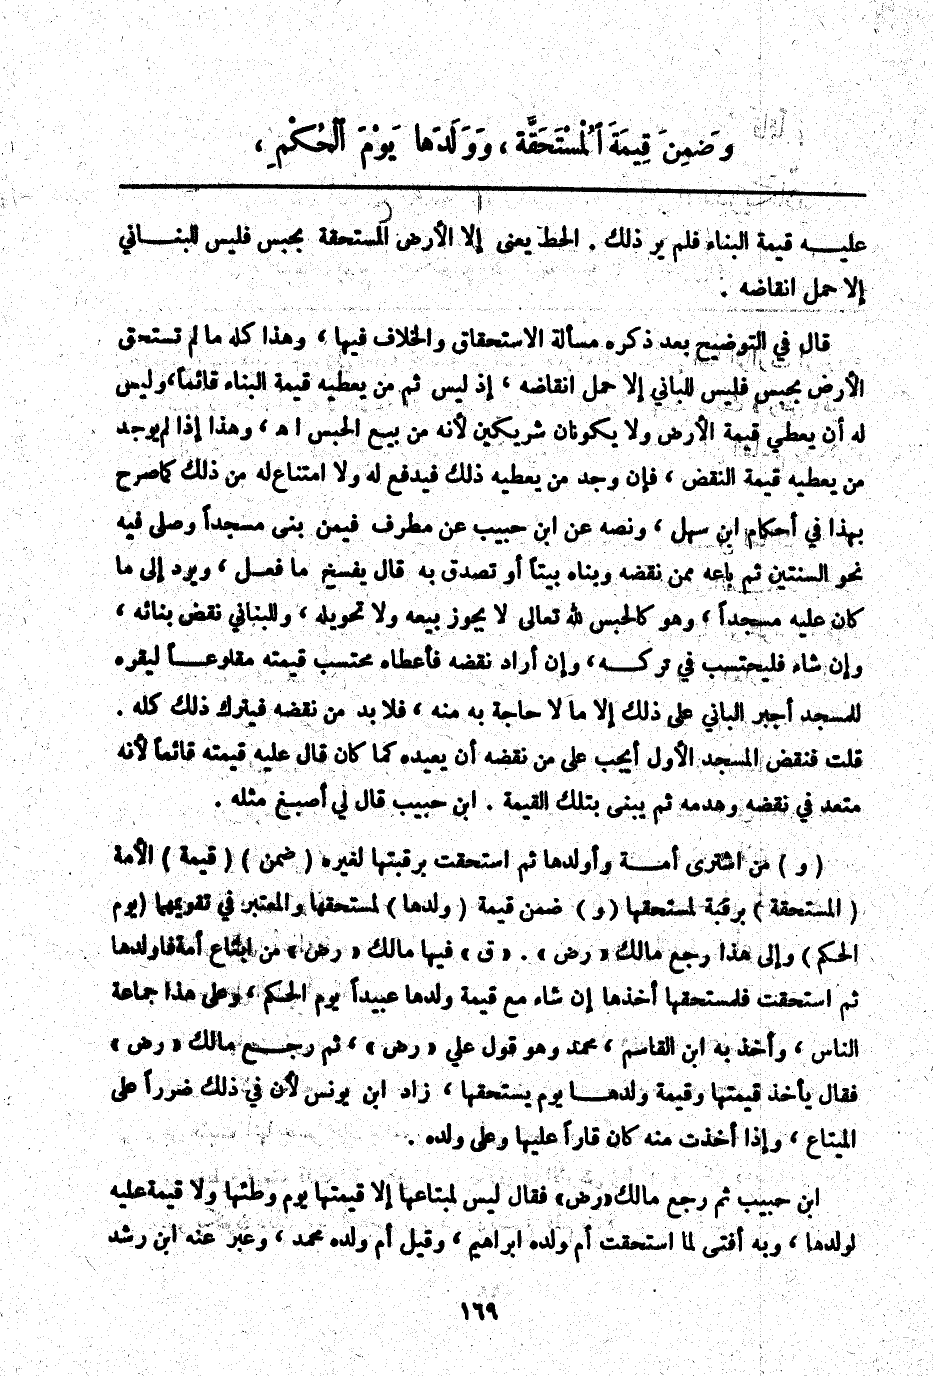 وَضَمِنَ قِيمَةَ ٱلْمُسْتَحَقَّةِ ، وَوَلَدَهَا يَوْمَ ٱلْحُكْمِ ،
عليـــه قيمة البناء فلم ير ذلك . الحط يعنى إلا الأرض المستحقة بحبس فليس للبنـــاني
إلا حمل انقاضه .
قال في التوضيح بعد ذكره مسألة الاستحقاق والخلاف فيها ، وهذا كله ما لم تستحق
الأرض بحبس فليس للباني إلا حمل انقاضه ، إذ ليس ثم من يعطيه قيمة البناء قائماً، وليس
له أن يعطي قيمة الأرض ولا يكونان شريكين لأنه من بيع الحبس ا ه ، وهذا إذا لم يوجد
من يعطيه قيمة النقض ، فإن وجد من يعطيه ذلك فيدفع له ولا امتناع له من ذلك كما صرح
بهذا في أحكام ابن سهل ، ونصه عن ابن حبيب عن مطرف فيمن بنى مسجداً وصلى فيه
نحو السنتين ثم باعه ممن نقضه وبناه بيتاً أو تصدق به قال يفسخ ما فعـل ، ويرد إلى ما
كان عليه مسجداً ، وهو كالحبس لله تعالى لا يجوز بيعه ولا تحويله ، وللبناني نقض بنائه ،
وإن شاء فليحتسب في تركـــه، وإن أراد نقضه فأعطاه محتسب قيمته مقلوعـــاً ليقره
للمسجد أجبر الباني على ذلك إلا ما لا حاجة به منه ، فلا بد من نقضه فيترك ذلك كله .
قلت فنقض المسجد الأول أيجب على من نقضه أن يعيده كما كان قال عليه قيمته قائماً لأنه
متعد في نقضه وهدمه ثم يبنى بتلك القيمة . ابن حبيب قال لي أصبـغ مثله .
( و ) من اشترى أمـــة وأولدها ثم استحقت برقبتها لغيره ( ضمن ) ( قيمة ) الأمة
( المستحقة ) برقبة لمستحقها ( و ) ضمن قيمة ( ولدها ) لمستحقها والمعتبر في تقويمها ( يوم
الحكم ) وإلى هذا رجع مالك « رض » . « ق » فيها مالك « رض » من ابتاع أمة فاولدها
ثم استحقت فلمستحقها أخذها إن شاء مع قيمة ولدها عبيداً يوم الحكم ، وعلى هذا جماعة
الناس ، وأخذ به ابن القاسم ، محمد وهو قول علي « رض » ، ثم رجـــع مالك « رض »
فقال يأخذ قيمتها وقيمة ولدهـــا يوم يستحقها ، زاد ابن يونس لأن في ذلك ضرراً على
المبتاع ، وإذا أخذت منه كان قاراً عليها وعلى ولده .
ابن حبيب ثم رجع مالك«رض» فقال ليس لمبتاعها إلا قيمتها يوم وطئها ولا قيمة عليه
لولدها ، وبه أفتى لما استحقت أم ولده ابراهيم ، وقيل أم ولده محمد ، وعبر عنه ابن رشد
١٦٩